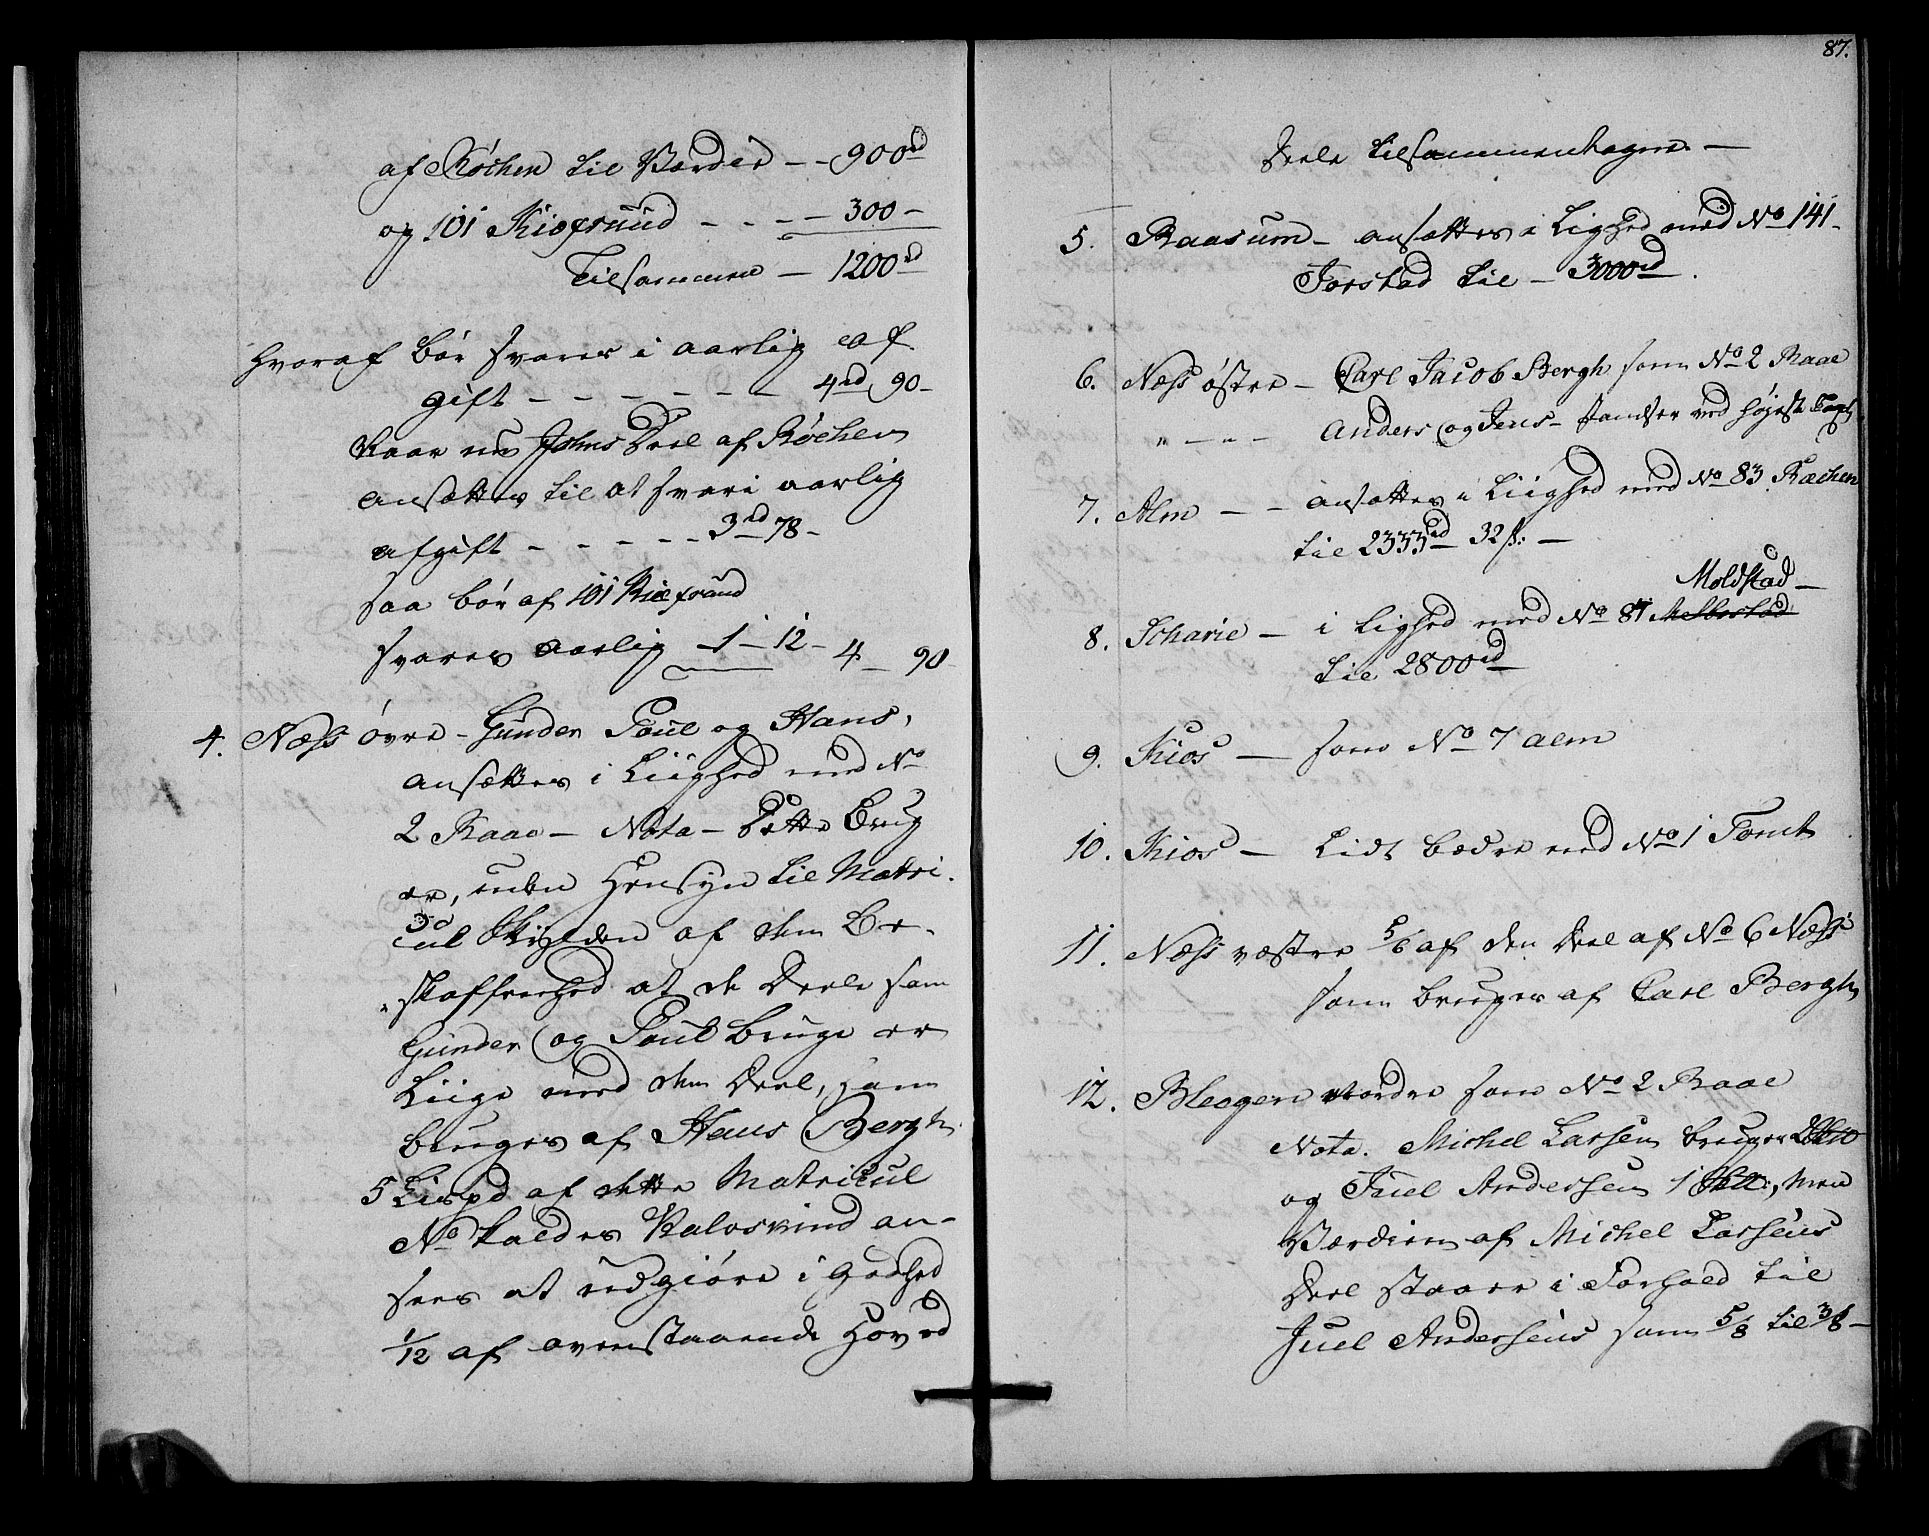 af Røchen til Værdie -- 900rd
og 101 Kiøfsruud ---- 300 -
Tilsammen - 1200rd
hvoraf bør svares i aarlig Af
gift ------ 4rd 90 -
Naar nu Johns Deel af Røchen
ansættes til at svare i aarlig
afgift ----- 3rd 78 -
saa bør af 101
svares aarlig 1 - 12 - 4 - 90
4. Næss øvre - Gunder Poul og Hans,
ansættes i Liighed med No
2 Raae - Nota - Dette Brug
er, uden Hensyn til Matri.
cul Skylden af den Be-
skaffenhed at de Deele som
Gunder og Poul bruge er
Liige med den Deel, som
bruges af Hans Bergh.
5 Lispd af dette Matricul
No kaldes Kalvsvind an-
sees at udgiøre i Godhed
1/12 af ovenstaaende Hoved
87.
Deele tilsammentagne. -
5. Raasum - ansættes i Lighed med No 141 -
Jorstad til - 3000rd.
6. Næss østre - Carl Jacob Bergh som No 2 Raae
" - " - Anders og Jens - standser ved høyeste Taxt
7. Alm -- ansættes i Liighed med No 83 Ræchen
til 2333rd 32 s: -
Moldstad -
8. Scharie - i Lighed med No 87
til 2800rd
9. Kios - som No 7 Alm
10. Kios - Lidt bædre end No 1 Tomt
11. Næss væstre 5/6 af den Deel af No 6 Næss
som bruges af Carl Bergh
12. Bleegen nordre som No 2 Raae
Nota. Michel Larsen bruger
og Juel Andersen 1 , Men
Værdien af Michel Larsens
Deel staaer i Forhold til
Juel Andersens som 5/8 til 3/8 -